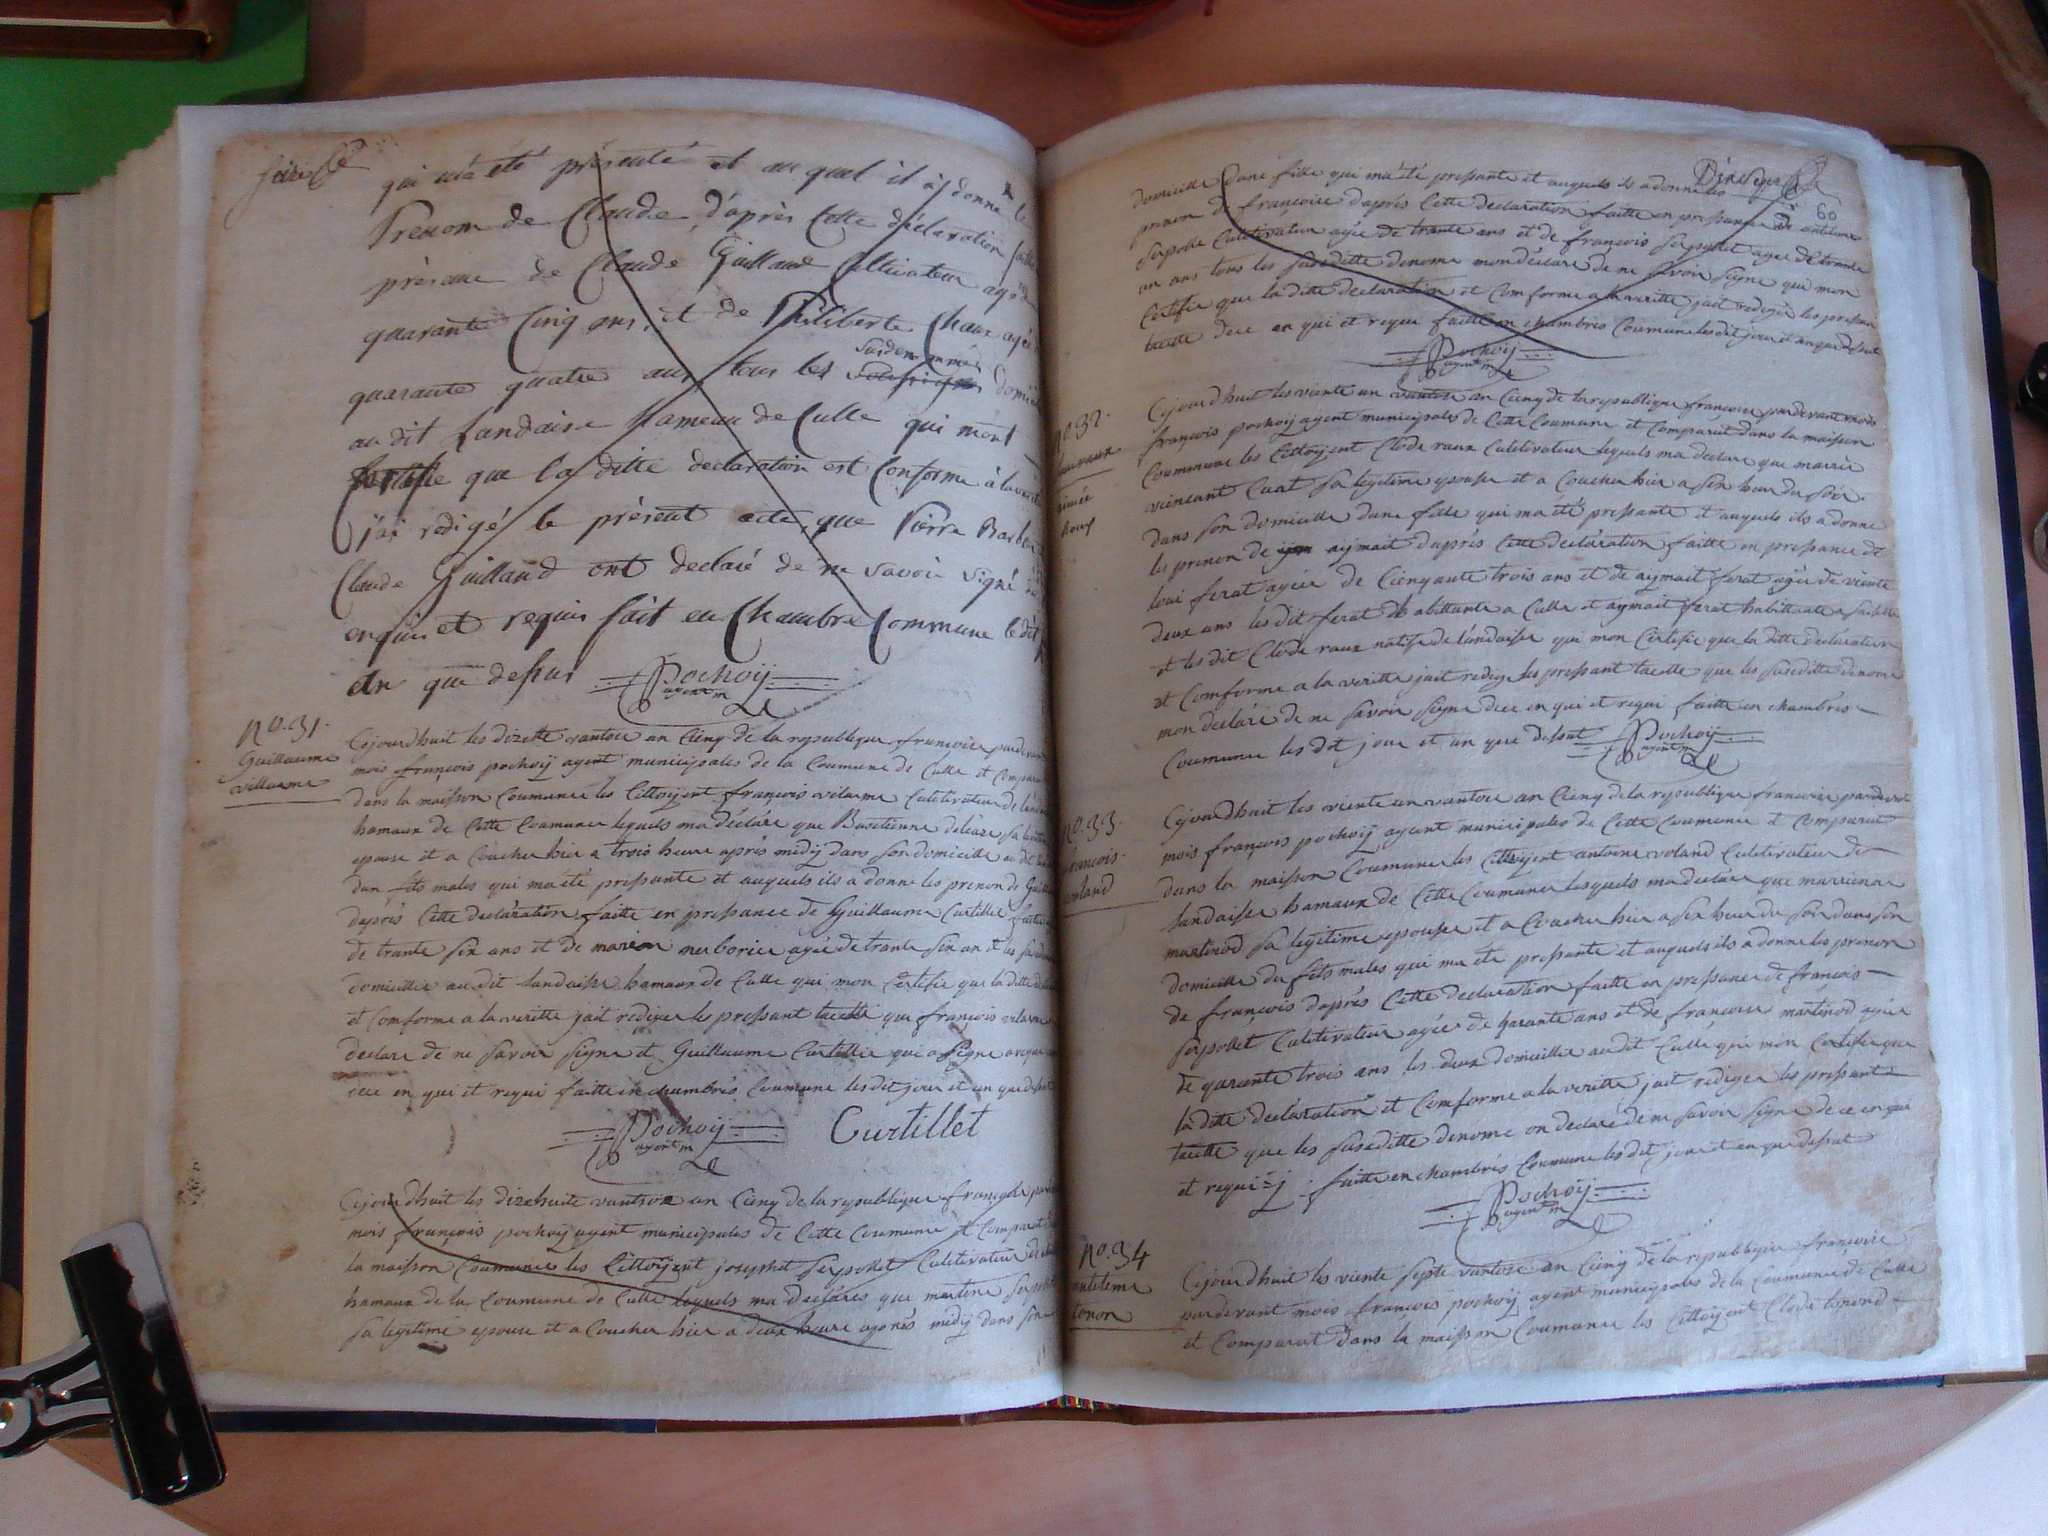 qui m'a été présenté et au quel il a donné le
Prenom de Claude, d'après Cette déclaration faitte
présence de Claude Guilland Cultivateur agé
quarante Cinq ans, et de Philiberte Chaux agé
quarante quatre ans, tous les susdenommés
audit Landaise hameau de Culle qui m'ont
Certifie que la ditte declaration est Conforme à la verité
j'ai redigé le présent acte, que Pierre
Claude Guilland ont declaré de ne savoir signé
enquis et requis fait en Chambre Commune le dit
an que dessus Pochoÿ
agent m
No. 31.
Guillaume
villarme
Cejourdhuit les dizette vantose an Cienq de la republique francoise pardevant
mois françois pochoÿ agent municipales de la Coumune de Culle et Comparut
dans la maisson Coumunee les Cittoÿent françois vilarme Culetivateur de
hamaux de Cette Coumunee lequels ma déclare que
epouse et a Coucher hier a trois heure après midÿ dans son domicille au dit
dun fits males qui ma été pressante et auquels ils a donne les prenon de
daprès Cette declaration faitte en pressance de Guillaume Curtillet
de trante six ans et de marion agée de trante six an et
domicillie au dit landaisse hamaux de Culle qui mon Certifie que la ditte
et Comforme a la veritte jait rediger les pressant que françois
declare de ne savoir signe et Guillaume Curtillie qui a signe
dece en qui et requi faitte en chambrés Coumune les dit jour et an que dessut
Pochoÿ Curtillet
agent m
Cejourdhuit les dizehuite vantose an Cienq de la republique françoise
mois françois pochoÿ agent municipales de Cette Coumune et Comparut
la maisson Coumunée les Cittoÿent josephet Serpollet Culetivateur
hamaux de la Coumune de Culle lequels ma declares que
sa legitime epouse et a Coucher hier a deux heure aprés midÿ dans son
60
domicille dune fille qui ma été pressante et auquels ils a donne les
prenon de françoise daprès Cette declaration faitte en pressance de
Serpolle Culetivateur agée de trante ans et de françois Serpollet agee de trante
un ans tous les susditte denome mon déclare de ne savoir signe qui mon
Certifie que la ditte declaration et Comforme a la veritte jait rediger les pressant
dece en qui et requi faitte en chambres Coumune les dit jour et an que dessut
Pochoÿ
agent m
No. 32.
Cejourdhuit les viente un vantose an Cienq de la republique francoise pardevant mois
françois pochoÿ agent municipales de Cette Coumune et Comparut dans la maisson
Coumunne les Cittoÿent Clode raux Culetivateur lequels ma declare que marrie
sa legitime epouse et a Coucher hier a sin heur du soir
dans son domicille dune fille qui ma été pressante et auquels ils a donne
les prenon de aÿmait daprés Cette declaration faitte en pressance de
loui ferat agée de Cienquante trois ans et de aÿmait ferat agée de viente
deux ans les dit ferat habittante a Culle et aÿmait ferat habittante a
et les dit Clode raux natife de landaisse qui mon Certifie que la ditte declaration
et Comforme a la veritte jait redige les pressant que les susditte denome
mon déclare de ne savoir signe dece en qui et requi faitte en chambres
Coumunee les dit jour et an que dessut Pochoÿ
agent m
No. 33.
françois
voland
Cejourdhuit les viente un vantose an Cienq de la republique francoise pardevant
mois françois pochoÿ agent municipales de Cette Coumune et Comparut
dans la maisson Coumunee les Cittoÿent antoine voland Culetivateur de
landaisse hamaux de Cette Coumunee lesquels ma declare que
martinod sa legitime epouse et a Coucher hier a sin heur du soir dans son
domicille du fits males qui ma été pressante et auquels ils a donne les prenon
de françois daprés Cette declaration faitte en pressance de françois
Serpollet Culetivateur agée de ans et de françoise martinod agée
de quarante trois ans les deux domicillie audit Culle qui mon Certifie que
la ditte declaration et Comforme a la veritte jait rediger les pressant
que les susditte denome on declaré de ne savoir signe de ce en qui
et requi faitte en chambrés Coumune les dit jour et an que dessut
Pochoÿ
agent m
No. 34
tonon
Cejourdhuit les viente septe vantose an Cienq de la republique francoise
pardevant mois francois pochoÿ agent municipales de la Coumune de Culle
et Comparut dans la maisson Coumunee les Cittoÿent Clode tonond